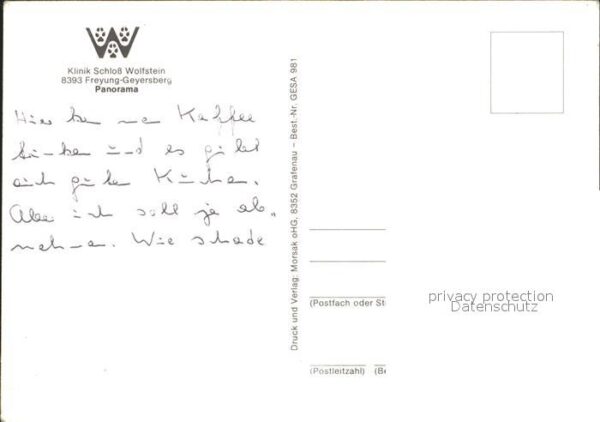 Klinik Schloß Wolfstein
8393 Freyung-Geyersberg
Panorama
Hier kann man Kaffee
trinken und es gibt
auch guten Kuchen.
Aber ich soll ja ab-
nehmen. Wie schade
Druck und Verlag: Morsak oHG, 8352 Grafenau – Best.-Nr. GESA 981
(Postfach oder St
(Postleitzahl) (Be
privacy protection
Datenschutz